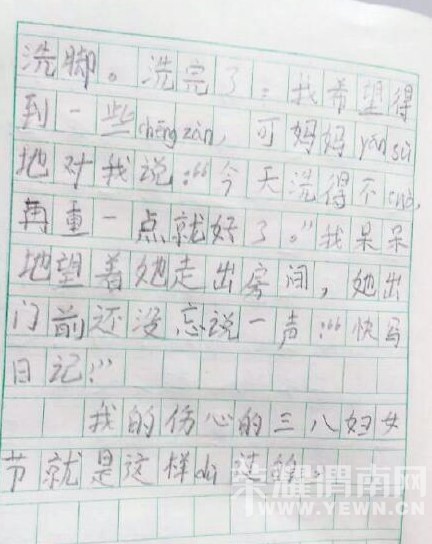 洗脚。洗完了，我希望得
到一些chēng zàn，可妈妈yán sù
地对我说：“今天洗得不cuò，
再重一点就好了。”我呆呆
地望着她走出房间，她出
门前还没忘说一声：“快写
日记！”
我的伤心的三八妇女
节就是这样dù过的。
荣耀渭南网
WWW.YEWN.CN